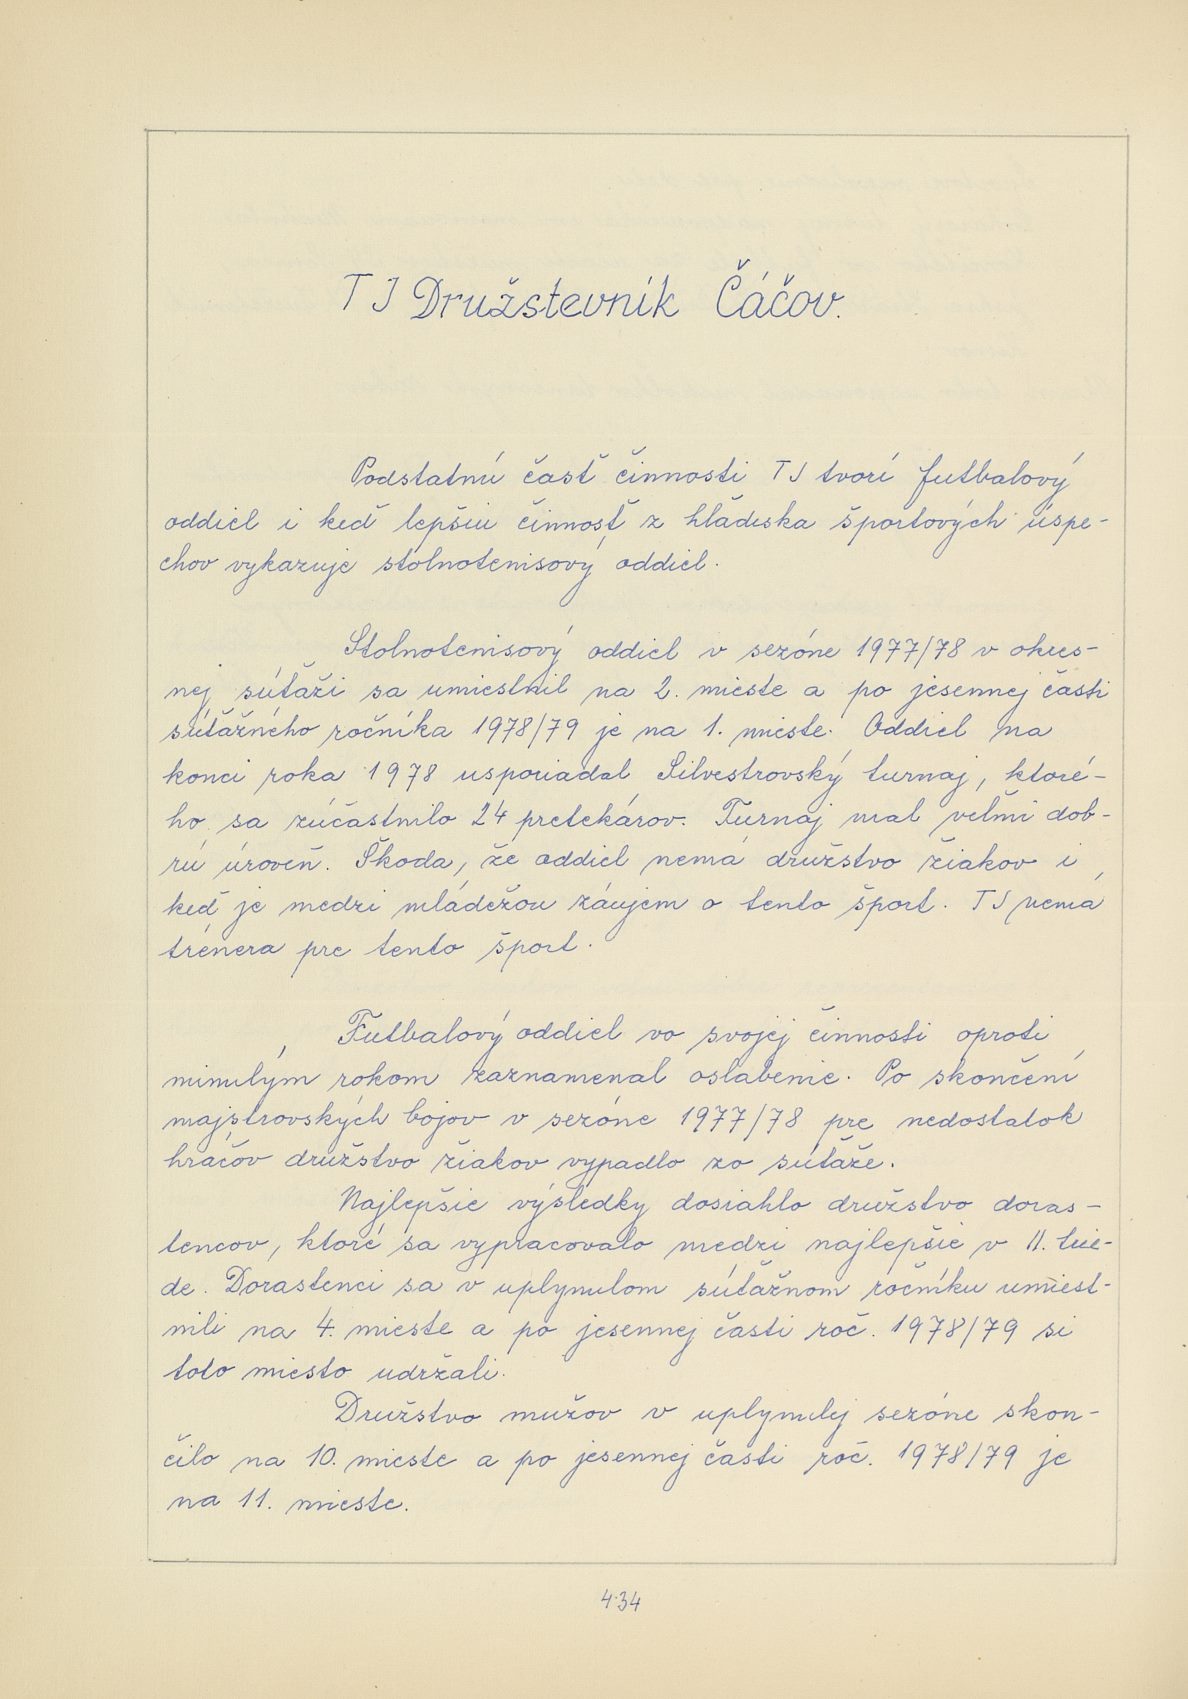 TJ Družstevník Čáčov.
Podstatnú časť činnosti TJ tvorí futbalový
oddiel i keď lepšiu činnosť z hľadiska športových úspe-
chov vykazuje stolnotenisový oddiel.
Stolnotenisový oddiel v sezóne 1977/78 v okres-
nej súťaži sa umiestnil na 2. mieste a po jesennej časti
súťažného ročníka 1978/79 je na 1. mieste. Oddiel na
konci roka 1978 usporiadal Silvestrovský turnaj, ktoré-
ho sa zúčastnilo 24 pretekárov. Turnaj mal veľmi dob-
rú úroveň. Škoda, že oddiel nemá družstvo žiakov i
keď je medzi mládežou záujem o tento šport. TJ nemá
trénera pre tento šport.
Futbalový oddiel vo svojej činnosti oproti
minulým rokom zaznamenal oslabenie. Po skončení
majstrovských bojov v sezóne 1977/78 pre nedostatok
hráčov družstvo žiakov vypadlo zo súťaže.
Najlepšie výsledky dosiahlo družstvo doras-
tencov, ktoré sa vypracovalo medzi najlepšie v II. trie-
de. Dorastenci sa v uplynulom súťažnom ročníku umiest-
nili na 4. mieste a po jesennej časti roč. 1978/79 si
toto miesto udržali.
Družstvo mužov v uplynulej sezóne skon-
čilo na 10. mieste a po jesennej časti roč. 1978/79 je
na 11. mieste.
434